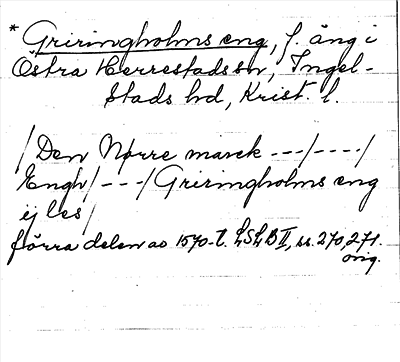 * Griringholms eng, f. äng i
Östra Herrestads sn, Ingel-
stads hd, Krist. l.
/Den Nørre marck ---/----/
Engh/---/Griringholms eng
ej les/
förra delen av 1570-t. LSLB II, ss. 270, 271.
orig.